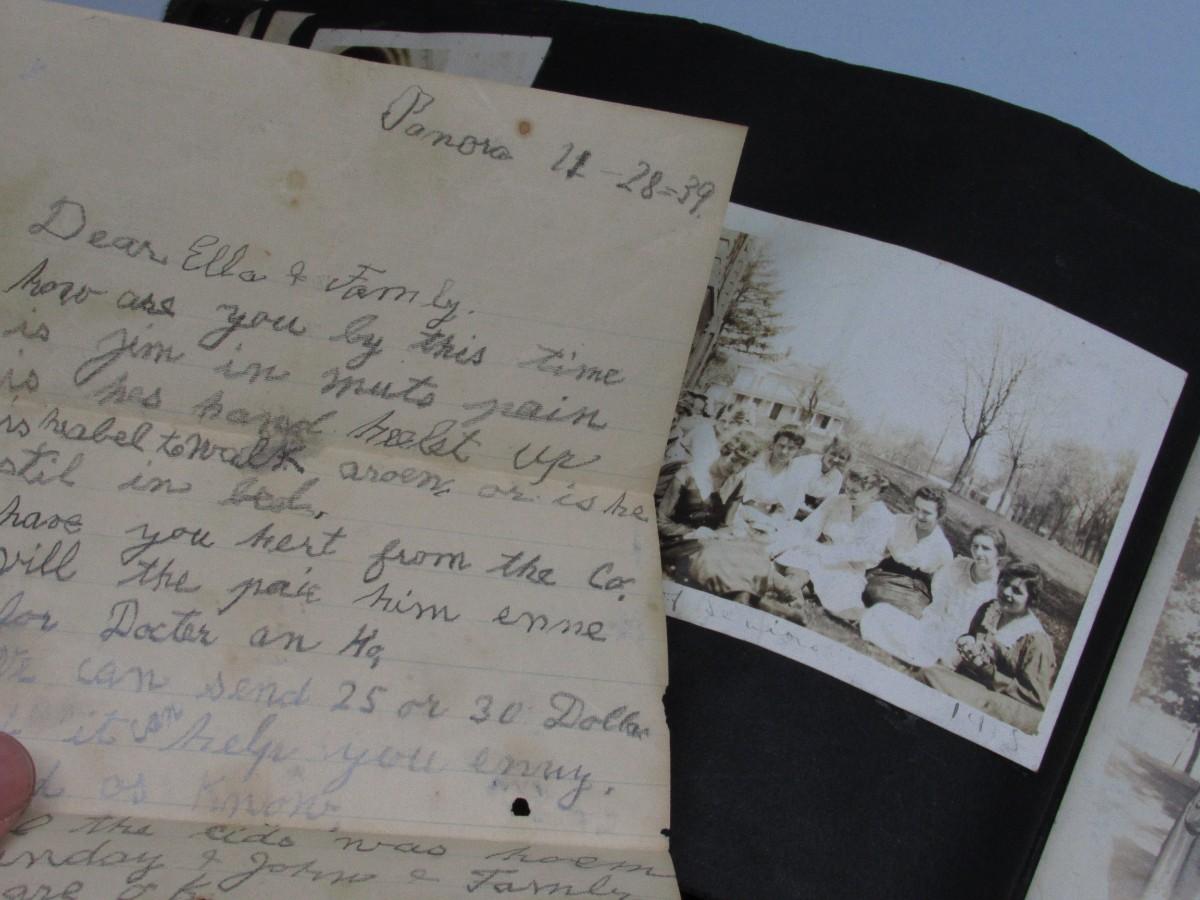 Panora 11-28=39.
Dear Ella & Family.
how are you by this time
is jim in muts pain
is hes hand heelet up
is heabel to walk aroen, or is he
stil in bed,
have you hert from the Co.
will the paie him enne
for Docter an Ho,
can send 25 or 30 Dollar
it help you enny.
os know
the cids was hoem
& John & Famly
are O K
Seniors
1915